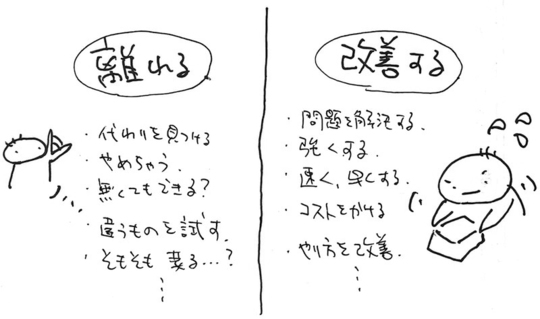 離れる
・代わりを見つける
・やめちゃう.
・無くてもできる?
・違うものを試す.
・そもそも 要る…?
⋮
改善する
・問題を解決する.
・強くする.
・速く、早くする.
・コストをかける
・やり方を改善.
⋮